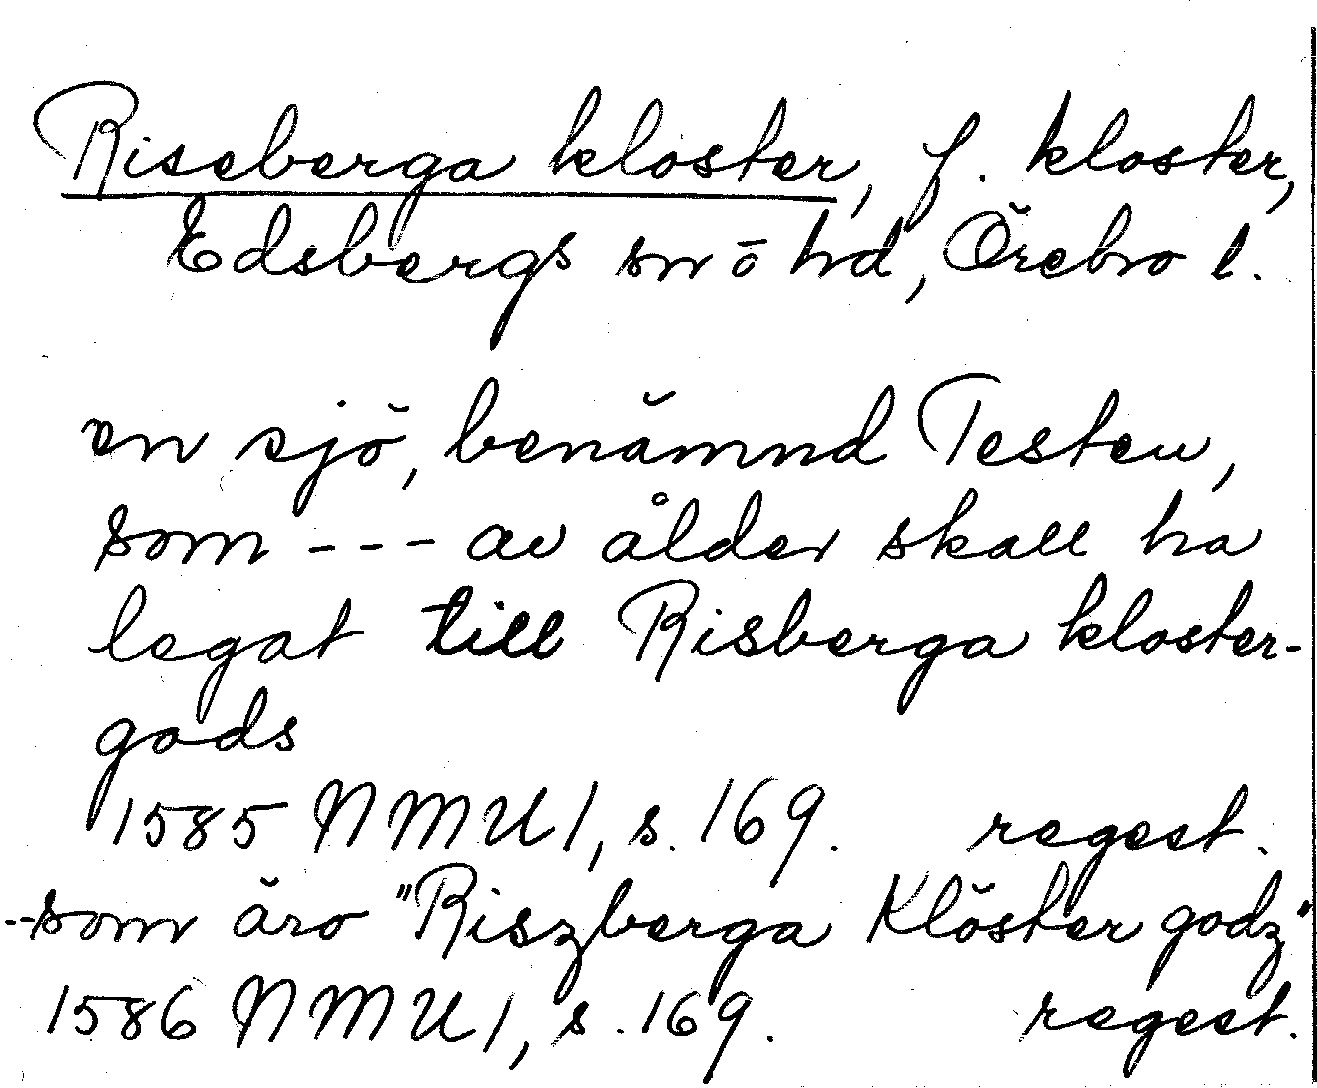 Riseberga kloster, f. kloster,
Edsbergs sn o hd, Örebro l.
en sjö, benämnd Testen,
som --- av ålder skall ha
legat till Risberga kloster-
gods
1585 NMU 1, s. 169. regest.
--som äro "Riszberga Klöster godz"
1586 NMU 1, s. 169. regest.